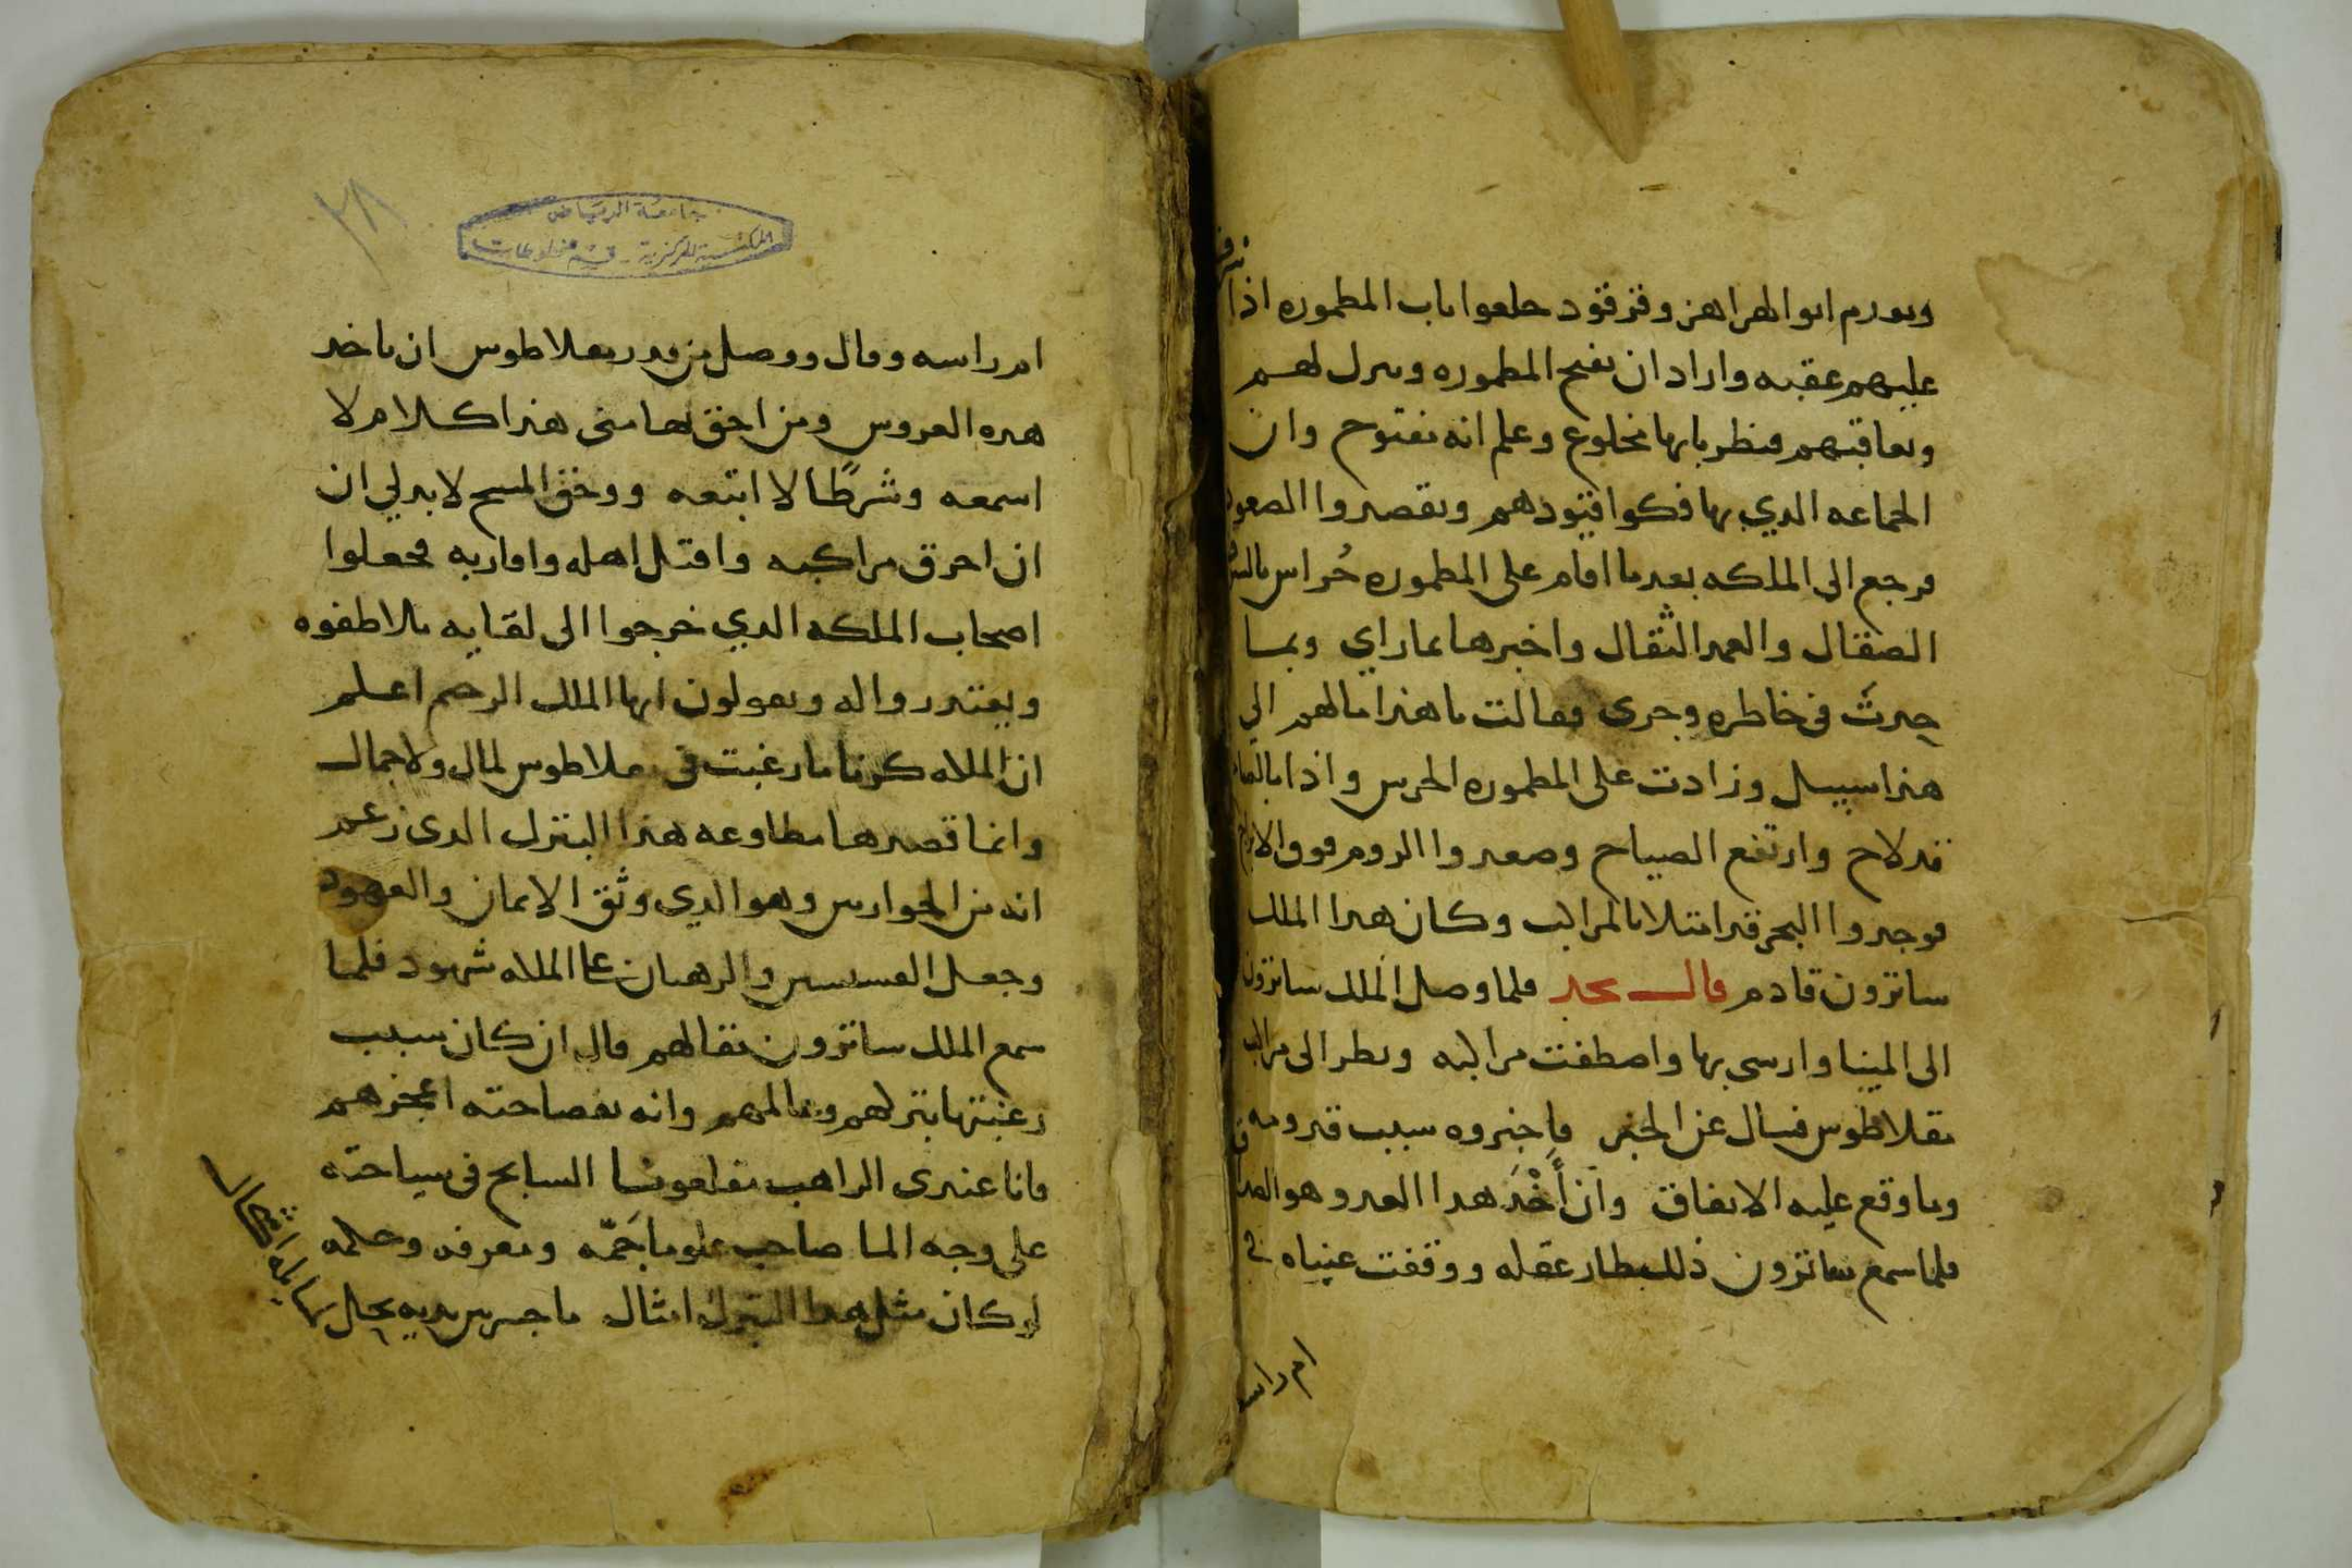 وتقدم ابو الهزاهز وقرقود خلعوا باب المطموره اذا
عليهم عقبه واراد ان يفتح المطموره وينزل لهم
ويعاقبهم فنظر بابها مخلوع وعلم انه مفتوح وان
الجماعه الدي بها فكوا قيودهم ويقصدوا الصعود
فرجع الى الملكه بعد ما اقام على المطموره حُراس
الصقال والعمد الثقال واخبرها بما راي وبما
حدث في خاطره وجرى فقالت ما هذا ما لهم الي
هذا سبيل وزادت على المطموره الحرس واذا
قد لاح وارتفع الصياح وصعدوا الروم فوق
فوجدوا البحر قد امتلا بالمراكب وكان هدا الملك
ساترون قادم قال نجد فلما وصل الملك ساترون
الى المينا وارسى بها واصطفت مراكبه ونظر الى مراكب
بقلاطوس فسال عن الخبر فاخبروه سبب قدومه
وما وقع عليه الاتفاق وان أَخْذ هدا العدو هو
فلما سمع ساترون ذلك طار عقله ووقفت عيناه في
ام راسه
٢٨
جامعة الرياض
المكتبة المركزية - قسم مخطوطات
ام راسه وقال ووصل من قدر بقلاطوس ان ياخد
هده العروس ومن احق بها مني هذا كلام لا
اسمعه وشرطًا لا اتبعه ووحق المسيح لا بد لي ان
ان احرق مراكبه واقتل اهله واقاربه فجعلوا
اصحاب الملكه الدي خرجوا الى لقايه يلاطفوه
ويعتدروا اله ويقولون ايها الملك الرحيم اعلم
ان الملكه كرنا ما رغبت في بقلاطوس لمال ولا جمال
وانما قصدها مطاوعه هذا البترك الدى زعم
انه من الحواريين وهو الدي وثق الايمان والعهود
وجعل القسيسين والرهبان على الملكه شهود فلما
سمع الملك ساترون مقالهم قال ان كان سبب
رغبتها بتركهم وعالمهم وانه بفصاحته اعجزهم
فانا عندى الراهب السايح في سياحته
على وجه الما صاحب علوما جَمّه ومعرفه وحكمه
لو كان مثل هدا البترك امثال ما جسر بين يديه